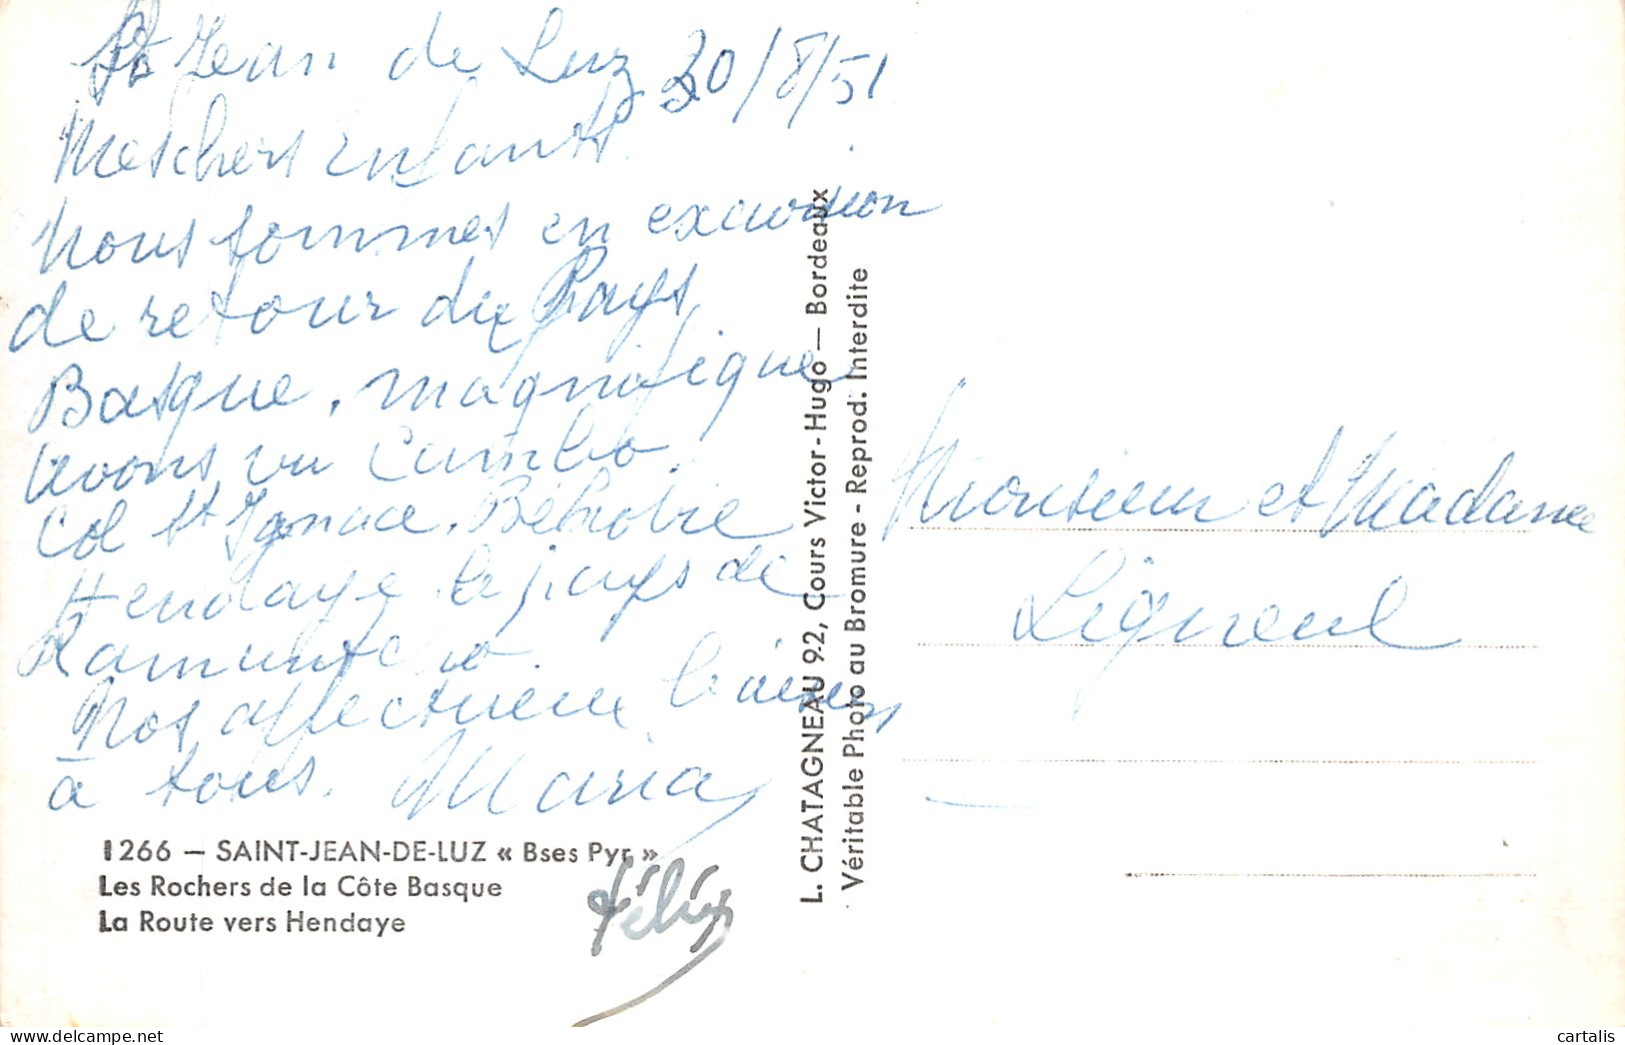 St Jean de Luz 30/8/51
Mes chers enfants
Nous sommes en excursion
de retour du Pays
Basque, magnifique
avons vu Cambo.
Col St Ignace, Béhobie
Hendaye le pays de
Ramuntcho.
Nos affectueux baisers
à tous. Maria
Félix
1266 — SAINT-JEAN-DE-LUZ « Bses Pyr »
Les Rochers de la Côte Basque
La Route vers Hendaye
L. CHATAGNEAU 92, Cours Victor-Hugo — Bordeaux
Véritable Photo au Bromure - Reprod. Interdite
Monsieur et Madame
Ligneul
cartalis